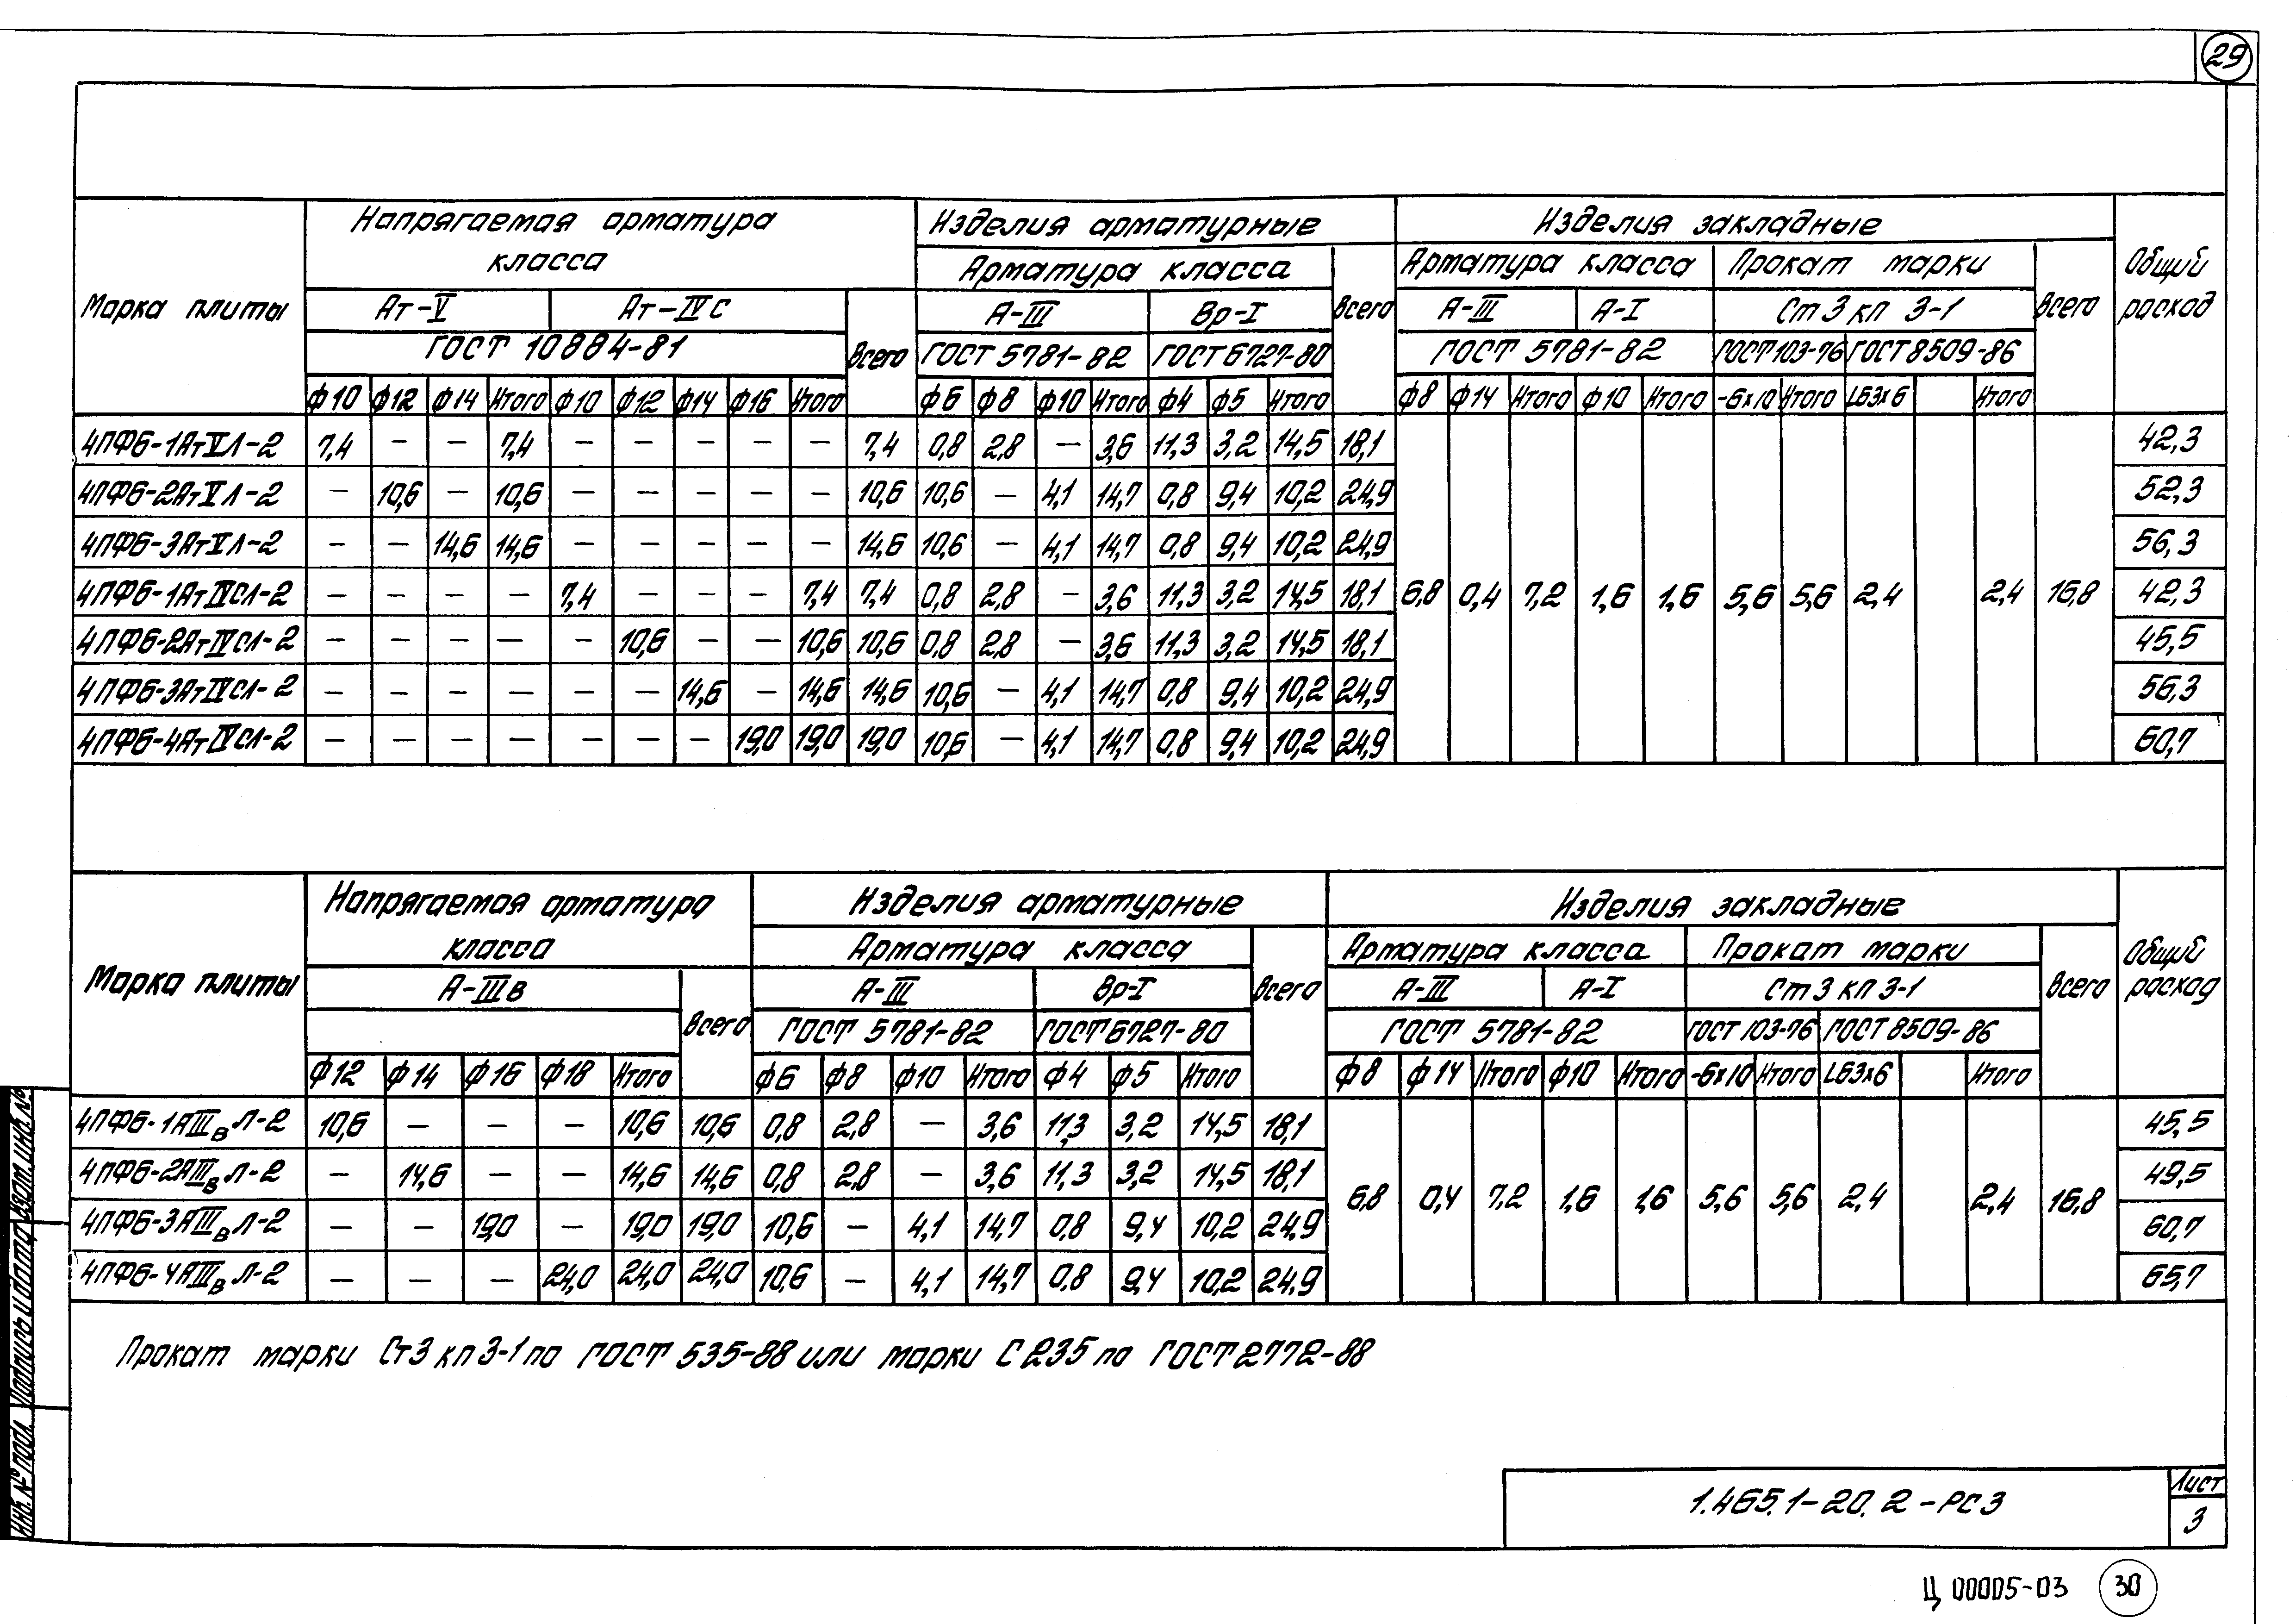 29
Марка плиты | Напрягаемая арматура класса | Изделия арматурные | Изделия закладные | Общий расход
Арматура класса | Всего | Арматура класса | Прокат марки | Всего
Ат-V | Ат-IVС | Всего | А-III | Вр-I | А-III | А-I | Ст3 кп 3-1
ГОСТ 10884-81 | ГОСТ 5781-82 | ГОСТ 6727-80 | ГОСТ 5781-82 | ГОСТ 103-76 | ГОСТ 8509-86
ф10 | ф12 | ф14 | Итого | ф10 | ф12 | ф14 | ф16 | Итого | ф6 | ф8 | ф10 | Итого | ф4 | ф5 | Итого | ф8 | ф14 | Итого | ф10 | Итого | -6х10 | Итого | L63х6 | Итого
4ПФ6-1АтVЛ-2 | 7,4 | — | — | 7,4 | — | — | — | — | — | 7,4 | 0,8 | 2,8 | — | 3,6 | 11,3 | 3,2 | 14,5 | 18,1 | 42,3
4ПФ6-2АтVЛ-2 | — | 10,6 | — | 10,6 | — | — | — | — | — | 10,6 | 10,6 | — | 4,1 | 14,7 | 0,8 | 9,4 | 10,2 | 24,9 | 52,3
4ПФ6-3АтVЛ-2 | — | — | 14,6 | 14,6 | — | — | — | — | — | 14,6 | 10,6 | — | 4,1 | 14,7 | 0,8 | 9,4 | 10,2 | 24,9 | 56,3
4ПФ6-1АтIVСЛ-2 | — | — | — | — | 7,4 | — | — | — | 7,4 | 7,4 | 0,8 | 2,8 | — | 3,6 | 11,3 | 3,2 | 14,5 | 18,1 | 6,8 | 0,4 | 7,2 | 1,6 | 1,6 | 5,6 | 5,6 | 2,4 | 2,4 | 16,8 | 42,3
4ПФ6-2АтIVСЛ-2 | — | — | — | — | — | 10,6 | — | — | 10,6 | 10,6 | 0,8 | 2,8 | — | 3,6 | 11,3 | 3,2 | 14,5 | 18,1 | 45,5
4ПФ6-3АтIVСЛ-2 | — | — | — | — | — | — | 14,6 | — | 14,6 | 14,6 | 10,6 | — | 4,1 | 14,7 | 0,8 | 9,4 | 10,2 | 24,9 | 56,3
4ПФ6-4АтIVСЛ-2 | — | — | — | — | — | — | — | 19,0 | 19,0 | 19,0 | 10,6 | — | 4,1 | 14,7 | 0,8 | 9,4 | 10,2 | 24,9 | 60,7
Марка плиты | Напрягаемая арматура класса | Изделия арматурные | Изделия закладные | Общий расход
Арматура класса | Всего | Арматура класса | Прокат марки | Всего
А-IIIв | Всего | А-III | Вр-I | А-III | А-I | Ст3 кп 3-1
ГОСТ 5781-82 | ГОСТ 6727-80 | ГОСТ 5781-82 | ГОСТ 103-76 | ГОСТ 8509-86
ф12 | ф14 | ф16 | ф18 | Итого | ф6 | ф8 | ф10 | Итого | ф4 | ф5 | Итого | ф8 | ф14 | Итого | ф10 | Итого | -6х10 | Итого | L63х6 | Итого
4ПФ6-1АIIIв Л-2 | 10,6 | — | — | — | 10,6 | 10,6 | 0,8 | 2,8 | — | 3,6 | 11,3 | 3,2 | 14,5 | 18,1 | 45,5
4ПФ6-2АIIIв Л-2 | — | 14,6 | — | — | 14,6 | 14,6 | 0,8 | 2,8 | — | 3,6 | 11,3 | 3,2 | 14,5 | 18,1 | 6,8 | 0,4 | 7,2 | 1,6 | 1,6 | 5,6 | 5,6 | 2,4 | 2,4 | 16,8 | 49,5
4ПФ6-3АIIIв Л-2 | — | — | 19,0 | — | 19,0 | 19,0 | 10,6 | — | 4,1 | 14,7 | 0,8 | 9,4 | 10,2 | 24,9 | 60,7
4ПФ6-4АIIIв Л-2 | — | — | — | 24,0 | 24,0 | 24,0 | 10,6 | — | 4,1 | 14,7 | 0,8 | 9,4 | 10,2 | 24,9 | 65,7
Прокат марки Ст3 кп 3-1 по ГОСТ 535-88 или марки С235 по ГОСТ 2772-88
Инв. № подл. | Подпись и дата | Взам. инв. №
1.465.1-20.2-РС3
Лист
3
Ц 00005-03 30